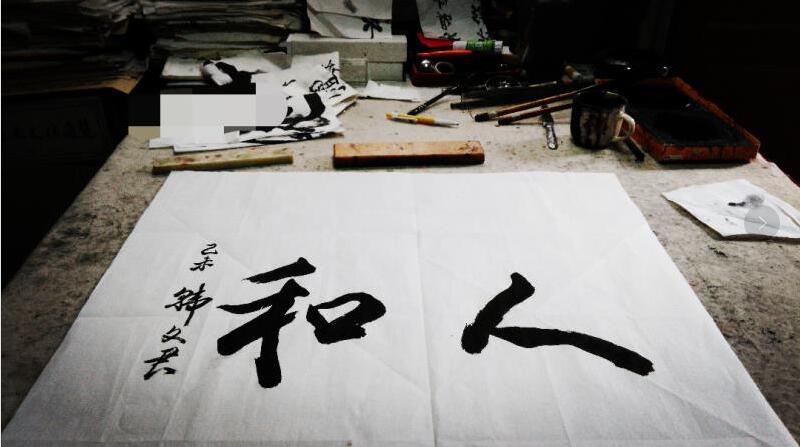 人和
乙未 韩文君